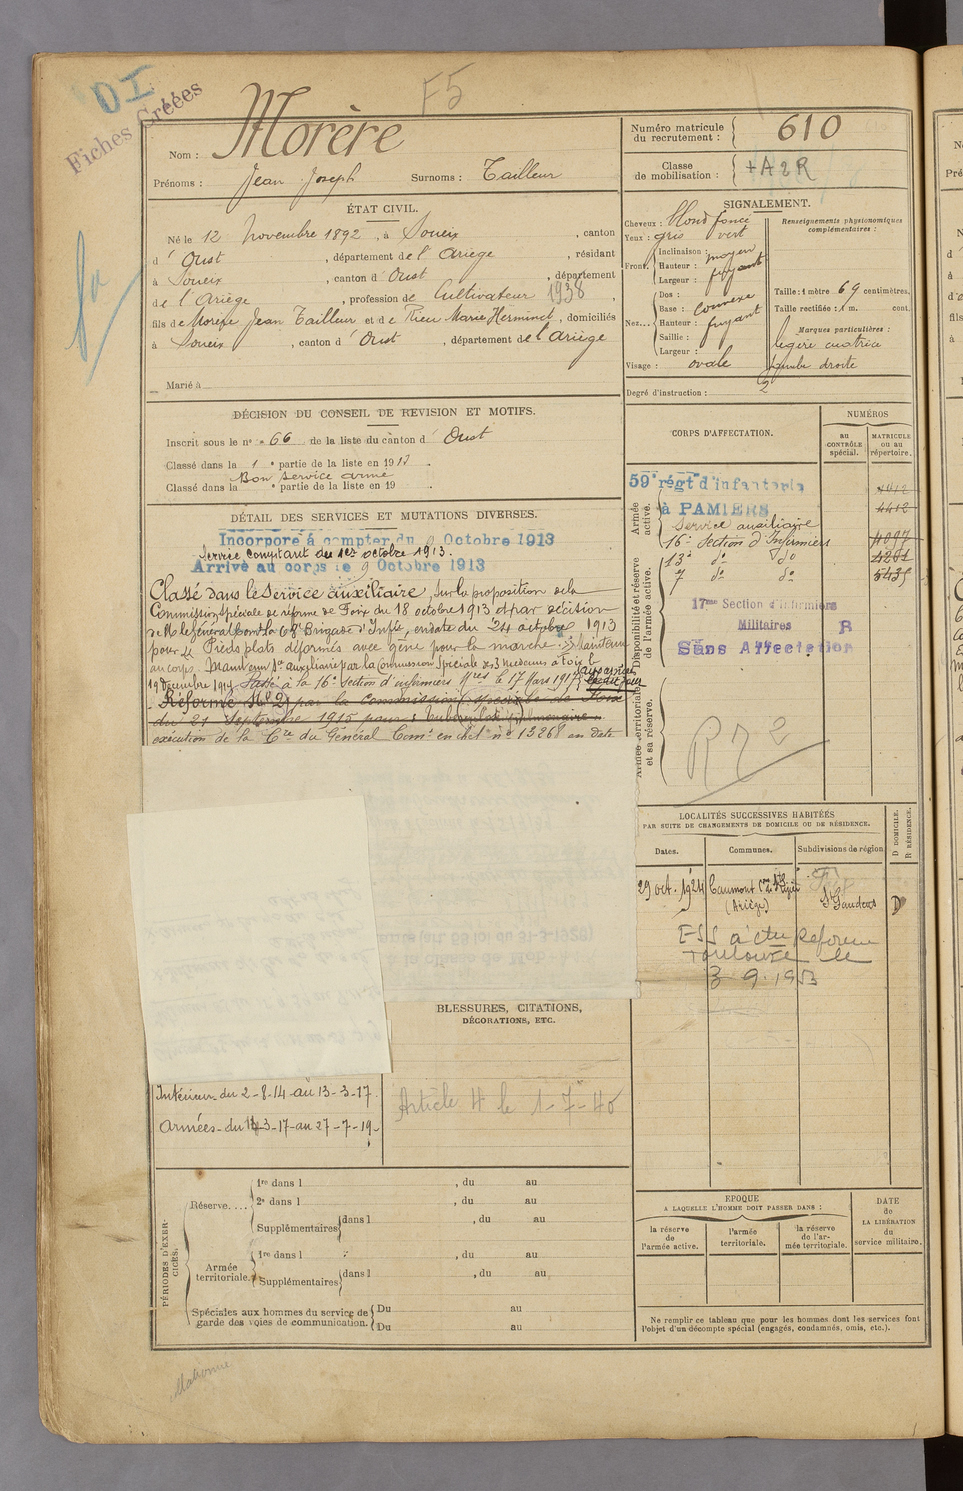 DI
F5
Fiches Créées
Nom : Morère
Prénoms : Jean Joseph Surnoms : Tailleur
Numéro matricule du recrutement : 610
Classe de mobilisation : + A 2 R
ÉTAT CIVIL.
Né le 12 Novembre 1892, à Soueix, canton
d' Oust, département de l'Ariège, résidant
à Soueix, canton d' Oust, département
de l'Ariège, profession de Cultivateur 1938,
fils de Morère Jean Tailleur et de Rieu Marie, domiciliés
à Soueix, canton d' Oust, département de l'Ariège
Marié à
SIGNALEMENT.
Cheveux : blond foncé
Yeux : gris vert
Front. Inclinaison : moyen
Hauteur : fuyant
Largeur :
Nez... Dos :
Base : convexe
Hauteur : fuyant
Saillie :
Largeur :
Visage : ovale
Renseignements physionomiques complémentaires :
Taille : 1 mètre 69 centimètres.
Taille rectifiée : 1 m. cent.
Marques particulières :
légère cicatrice
jambe droite
Degré d'instruction : 2
DÉCISION DU CONSEIL DE REVISION ET MOTIFS.
Inscrit sous le n° 66 de la liste du canton d' Oust
Classé dans la 1e partie de la liste en 1913.
Bon service armé
Classé dans la e partie de la liste en 19 .
DÉTAIL DES SERVICES ET MUTATIONS DIVERSES.
Incorporé à compter du 9 Octobre 1913
Service comptant du 1er octobre 1913.
Arrivé au corps le 9 Octobre 1913
Classé dans le service auxiliaire, sur la proposition de la
Commission spéciale de réforme de Foix du 18 octobre 1913 et par décision
de M le Général Comt la 68e Brigade d'Infie, en date du 24 octobre 1913
pour "Pieds plats déformés avec gêne pour la marche". Maintenu
au corps. Maintenu Sce auxiliaire par la Commission Spéciale des 3 médecins à Foix le
19 décembre 1914. Passé à la 16e Section d'infirmiers Mres le 17 Mars 1917
Réformé N° 2 par la commission spéciale de Foix
du 21 Septembre 1915 pour : tuberculose pulmonaire
exécution de la Cre du Général Comt en chef n° 13268 en date
CORPS D'AFFECTATION.
NUMÉROS
au CONTRÔLE spécial.
MATRICULE ou au répertoire.
Armée active.
59e régt d'infanterie
à PAMIERS
Service auxiliaire
16e Section d'Infirmiers
Disponibilité et réserve de l'armée active.
13e do do
7 do do
4412
17me Section d'infirmiers
Militaires R
Sans Affectation
Armée territoriale et sa réserve.
R 7 2
LOCALITÉS SUCCESSIVES HABITÉES
PAR SUITE DE CHANGEMENTS DE DOMICILE OU DE RÉSIDENCE.
Dates. Communes. Subdivisions de région.
D DOMICILE. R RÉSIDENCE.
29 oct. 1924 Caumont
(Ariège) St Gaudens D
Reforme
Toulouse le
3 . 9 . 1953
BLESSURES, CITATIONS,
DÉCORATIONS, ETC.
Intérieur du 2-8-14 au 13-3-17.
Armées du 14-3-17 au 27-7-19
Article 4 le 1-7-40
PÉRIODES D'EXERCICES.
Réserve....
1re dans l , du au
2e dans l , du au
Supplémentaires dans l , du au
Armée territoriale.
1re dans l , du au
Supplémentaires dans l , du au
Spéciales aux hommes du service de garde des voies de communication.
Du au
Du au
EPOQUE
A LAQUELLE L'HOMME DOIT PASSER DANS :
la réserve de l'armée active.
l'armée territoriale.
la réserve de l'armée territoriale.
DATE de LA LIBÉRATION du service militaire.
Ne remplir ce tableau que pour les hommes dont les services font
l'objet d'un décompte spécial (engagés, condamnés, omis, etc.).